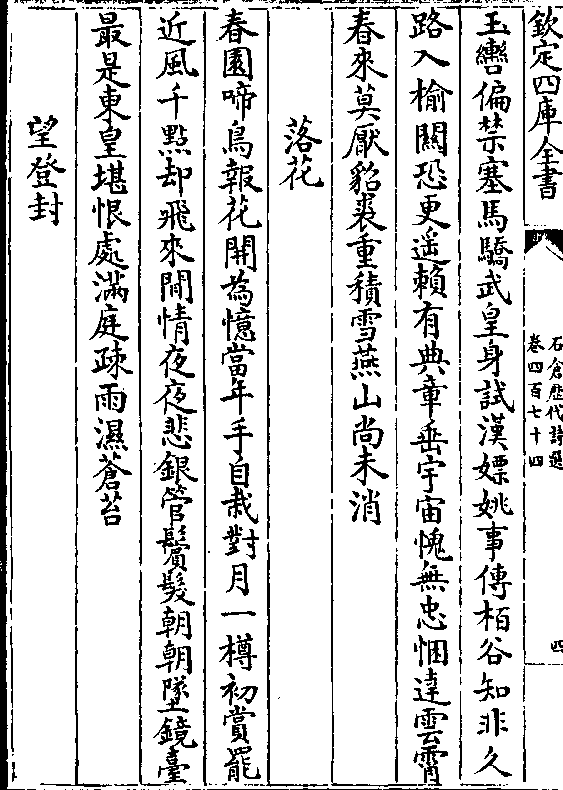 欽定四庫全書
石倉歴代詩選
卷四百七十四
四
玉轡偏禁塞馬驕武皇身試漢嫖姚事傳栢谷知非久
路入榆關恐更遥賴有典章垂宇宙愧無忠悃達雲霄
春來莫厭貂裘重積雪燕山尚未消
落花
春園啼鳥報花開為憶當年手自栽對月一樽初賞罷
近風千點却飛來閒情夜夜悲銀管鬢髮朝朝墜鏡臺
最是東皇堪恨處滿庭疎雨濕蒼苔
望登封